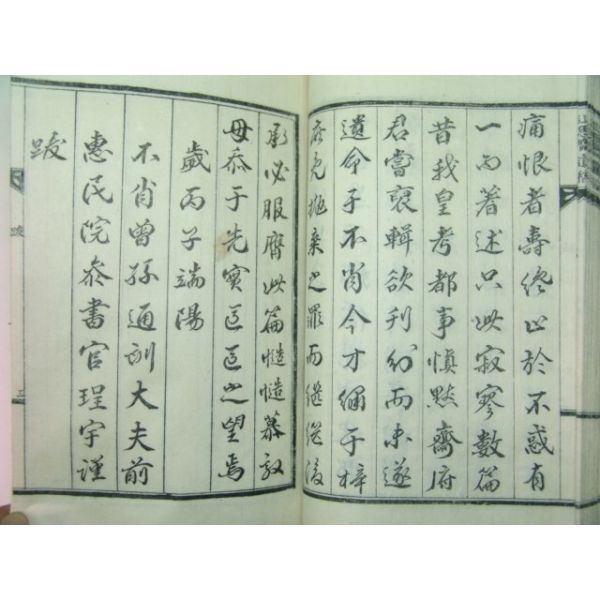 痛恨者壽終止於不惑有
一而著述只此寂寥數篇
昔我皇考都事愼默齋府
君嘗裒輯欲刊匆而未遂
遺命于不肖今才繡于梓
庶免擲棄之罪而繼繼後
承必服膺此篇慥慥慕效
毋忝于先實區區之望焉
歲丙子端陽
不肖曾孫通訓大夫前
惠民院參書官珵宇謹
跋
跋
三